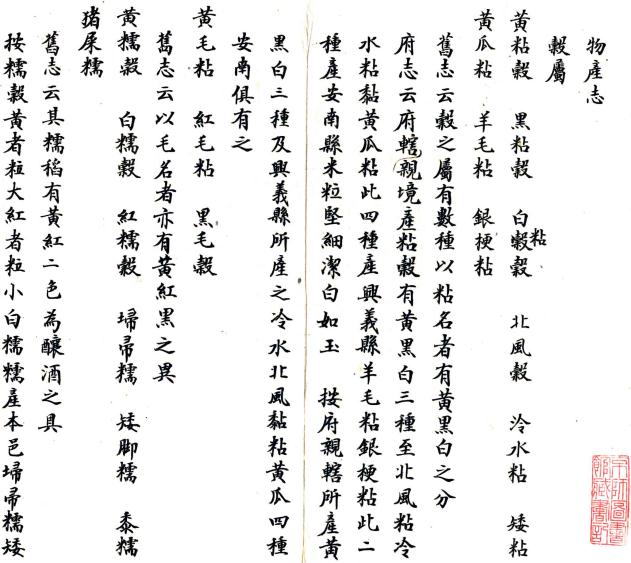 物產志
穀屬
黃粘穀 黑粘穀 白穀穀 粘 北風穀 冷水粘 矮粘
黃瓜粘 羊毛粘 銀梗粘
舊志云穀之屬有數種以粘名者有黃黑白之分
府志云府轄親境產粘穀有黃黑白三種至北風粘冷
水粘黏黃瓜粘此四種產興義縣羊毛粘銀梗粘此二
種產安南縣米粒堅細潔白如玉 按府親轄所產黃
黑白三種及興義縣所產之冷水北風黏粘黃瓜四種
安南俱有之
黃毛粘 紅毛粘 黑毛穀
舊志云以毛名者亦有黃紅黑之異
黃糯穀 白糯穀 紅糯穀 埽帚糯 矮脚糯 黍糯
猪屎糯
舊志云其糯稻有黃紅二色為釀酒之具
按糯穀黃者粒大紅者粒小白糯糯產本邑埽帚糯矮